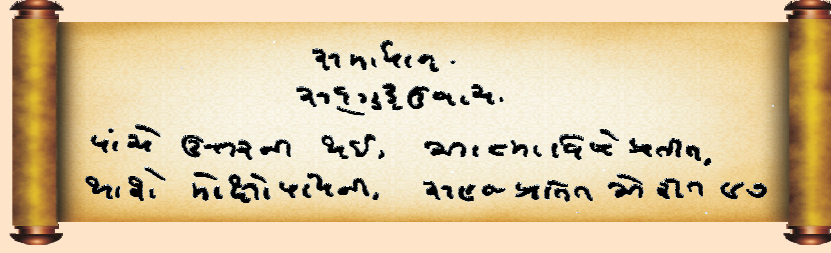 સમાધાન.
સદ્ગુરુ ઉવાચ.
પાંચે ઉત્તરની થઈ, આત્માવિષે પ્રતીત,
થાશે મોક્ષોપાયની, સહજ પ્રતિત એ રીત ૯૭